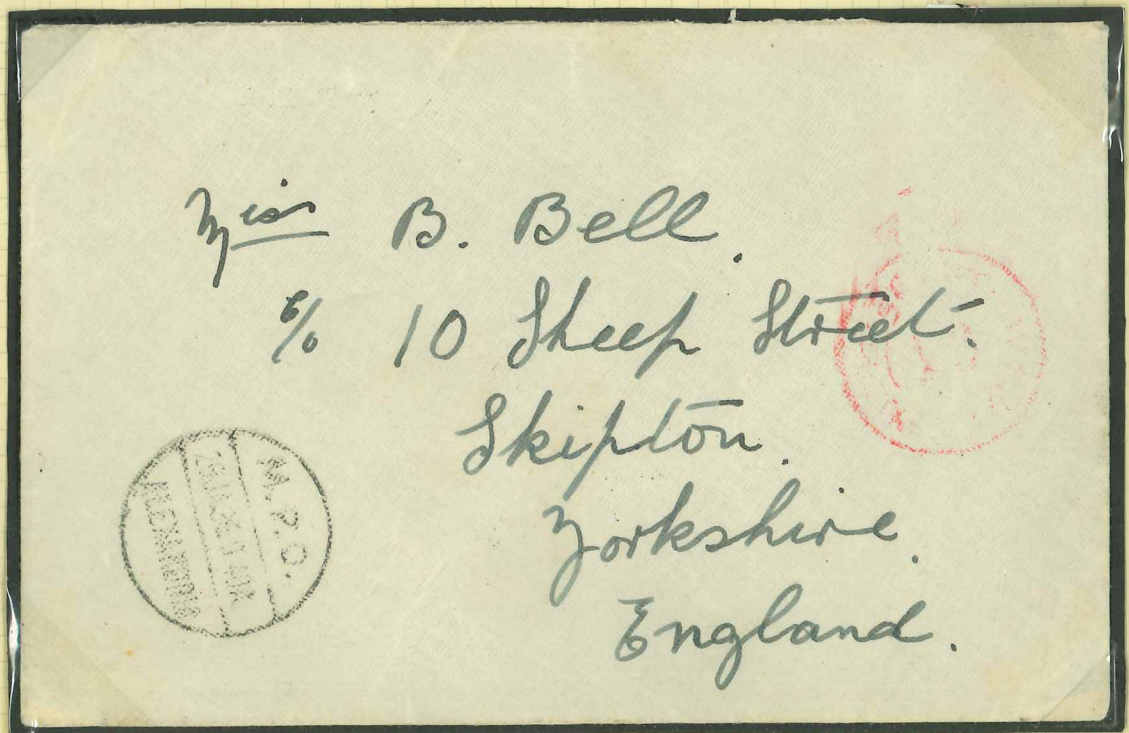 Miss B. Bell.
c/o 10 Sheep Street.
Skipton.
Yorkshire.
England.
M.P.O.
ALEXANDRIA